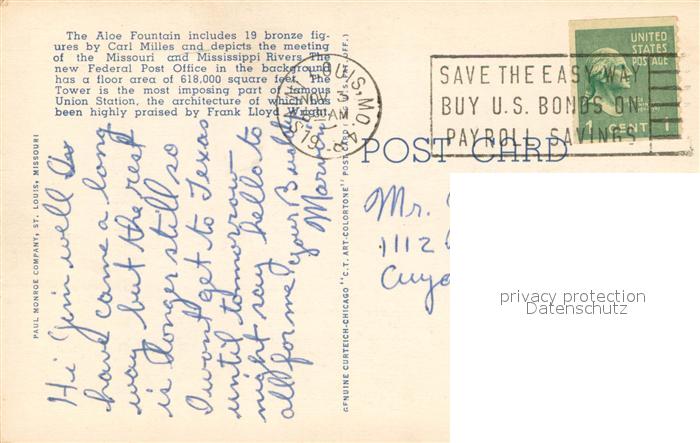 The Aloe Fountain includes 19 bronze fig-
ures by Carl Milles and depicts the meeting
of the Missouri and Mississippi Rivers. The
new Federal Post Office in the background
has a floor area of 618,000 square feet. The
Tower is the most imposing part of famous
Union Station, the architecture of which has
been highly praised by Frank Lloyd Wright.
PAUL MONROE COMPANY, ST. LOUIS, MISSOURI
Hi Jim well
have come a long
way but the rest
is longer still so
I wont get to Texas
until tomorrow
night say hello to
all for me your Buddy
Martin
GENUINE CURTEICH-CHICAGO "C.T. ART-COLORTONE" POST CARD (REG. U.S. PAT. OFF.)
ST. LOUIS, MO.
NOV 3
AM
SAVE THE EASY WAY
BUY U.S. BONDS ON
PAYROLL SAVINGS
UNITED
STATES
POSTAGE
1 CENT 1
POST CARD
Mr.
1112
Cuya
privacy protection
Datenschutz